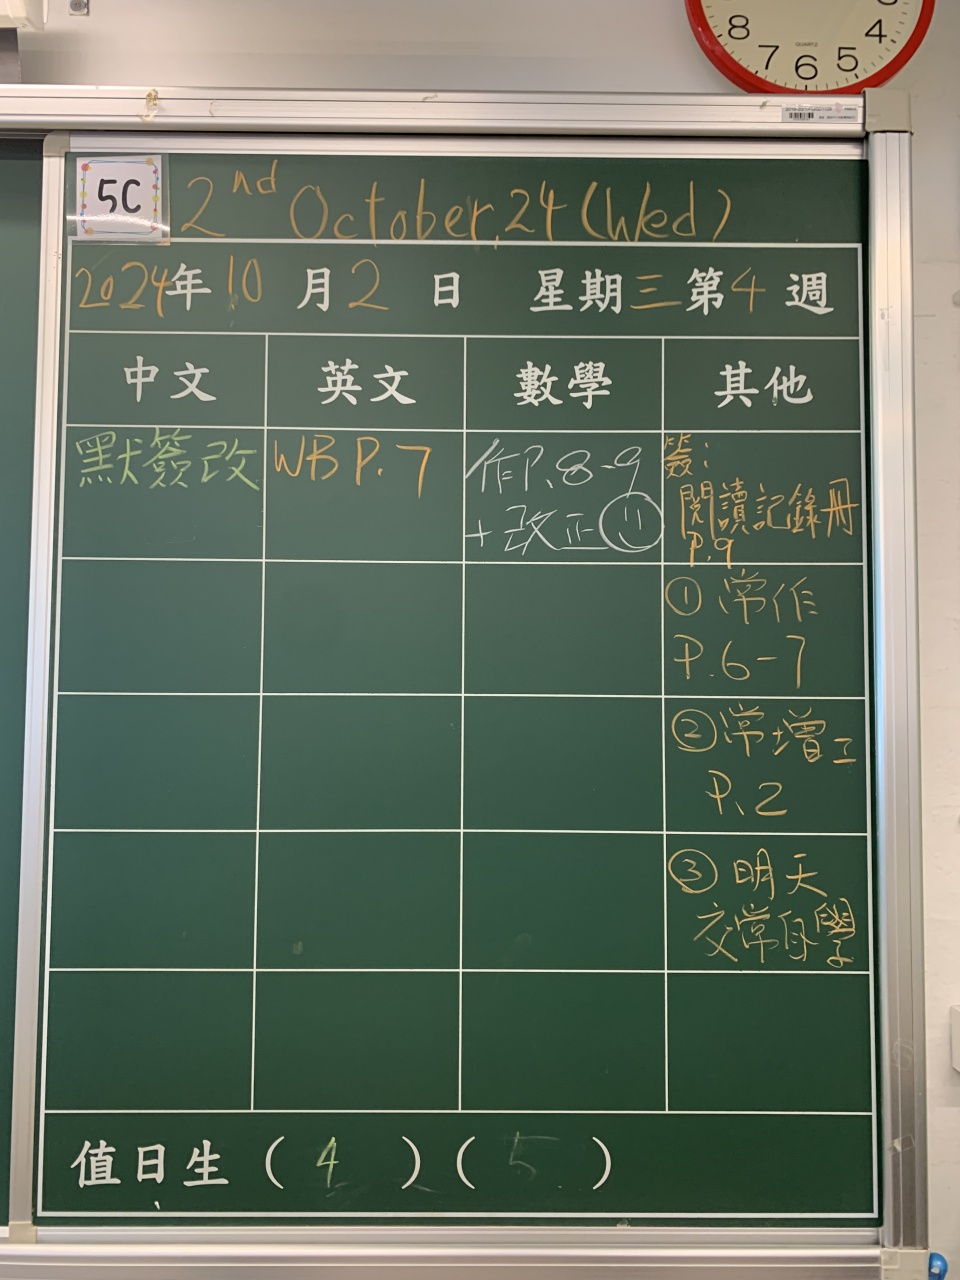 8 7 6 5 4
QUARTZ
5C
2nd October, 24 (Wed)
2024年10月2日 星期三第4週
中文 英文 數學 其他
默簽改
WB P.7
作P.8-9
+改正
簽:
閱讀記錄冊
P.9
① 常作
P.6-7
② 常增工
P.2
③ 明天
交常自學
值日生(4)(5)